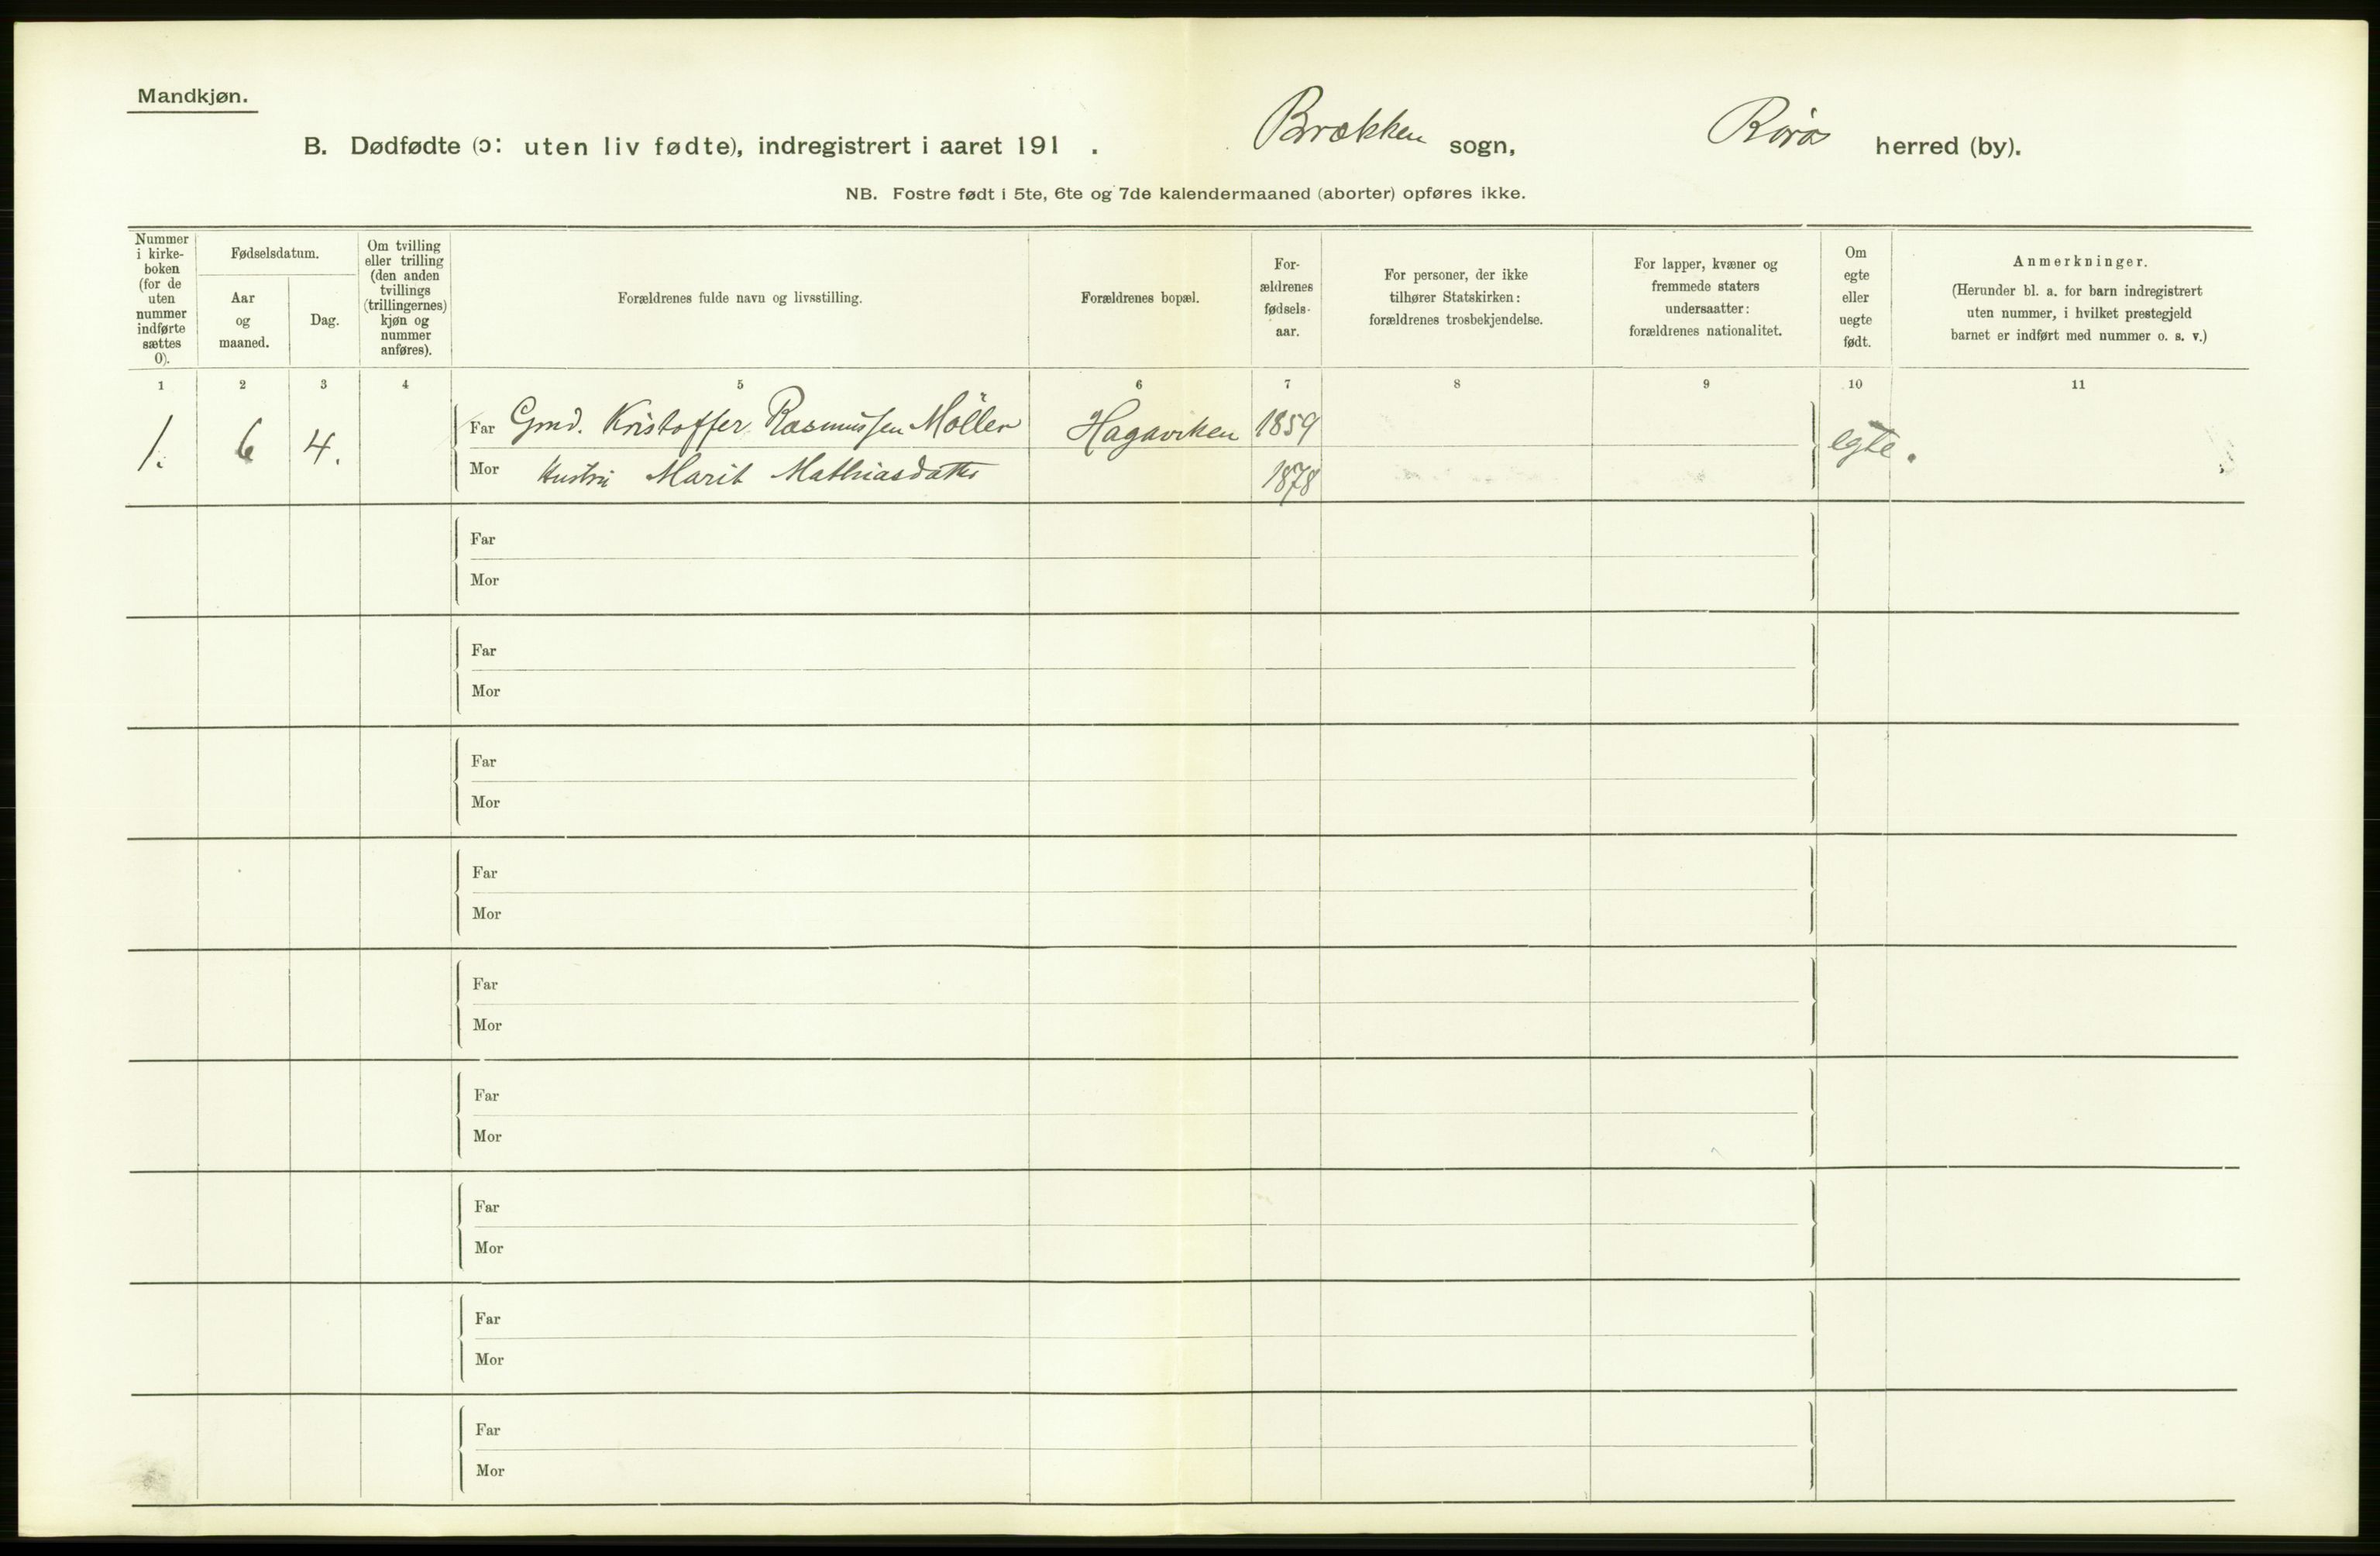 Mandkjøn.
B. Dødfødte (ɔ: uten liv fødte), indregistrert i aaret 191 . Brækken sogn, Røros herred (by).
NB. Fostre født i 5te, 6te og 7de kalendermaaned (aborter) opføres ikke.
Nummer
i kirke-
boken
(for de
uten
nummer
indførte
sættes
0).
Fødselsdatum.
Aar
og
maaned.
Dag.
Om tvilling
eller trilling
(den anden
tvillings
(trillingernes)
kjøn og
nummer
anføres).
Forældrenes fulde navn og livsstilling.
Forældrenes bopæl.
For-
ældrenes
fødsels-
aar.
For personer, der ikke
tilhører Statskirken:
forældrenes trosbekjendelse.
For lapper, kvæner og
fremmede staters
undersaatter:
forældrenes nationalitet.
Om
egte
eller
uegte
født.
Anmerkninger.
(Herunder bl. a. for barn indregistrert
uten nummer, i hvilket prestegjeld
barnet er indført med nummer o. s. v.)
1 2 3 4 5 6 7 8 9 10 11
1. 6 4. Far Gmd. Kristoffer Rasmussen Möller Hagaviken 1859 egte.
Mor Hustru Marit Mathiasdatter 1878
Far
Mor
Far
Mor
Far
Mor
Far
Mor
Far
Mor
Far
Mor
Far
Mor
Far
Mor
Far
Mor